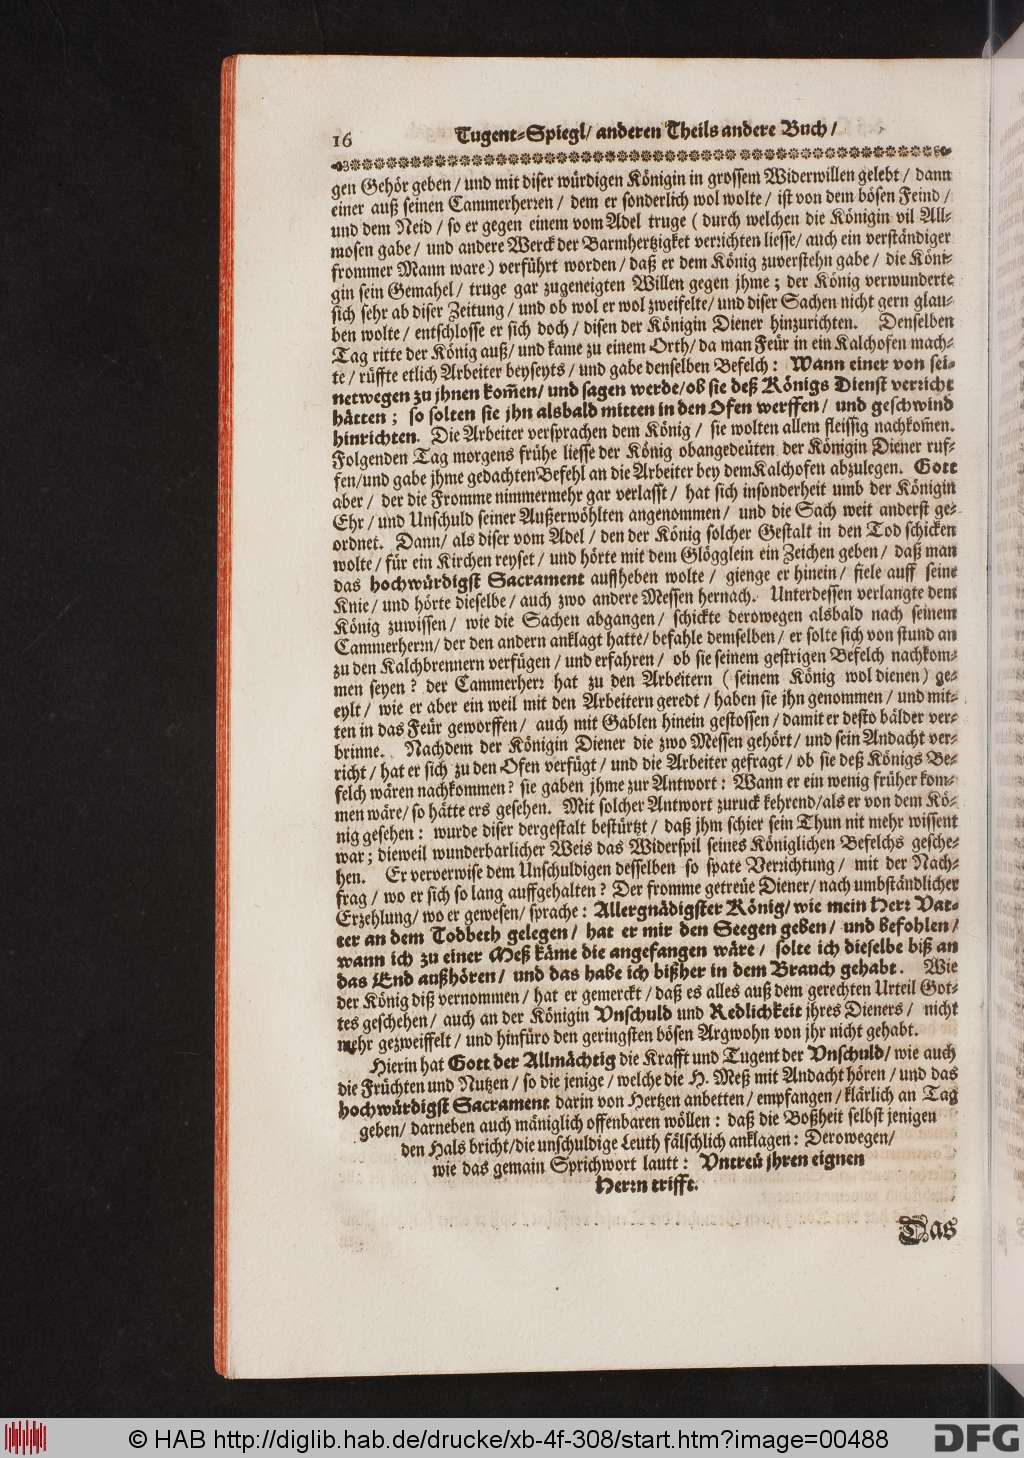 16 Tugent-Spiegl/ anderen Theils andere Buch/
gen Gehör geben / und mit diser würdigen Königin in grossem Widerwillen gelebt / dann
einer auß seinen Cammerherren / dem er sonderlich wol wolte / ist von dem bösen Feind /
und dem Neid / so er gegen einem vom Adel truge ( durch welchen die Königin vil All-
mosen gabe / und andere Werck der Barmhertzigket verrichten liesse/ auch ein verständiger
frommer Mann ware) verführt worden / daß er dem König zuverstehn gabe / die Köni-
gin sein Gemahel / truge gar zugeneigten Willen gegen jhme ; der König verwunderte
sich sehr ab diser Zeitung / und ob wol er wol zweifelte/ und diser Sachen nicht gern glau-
ben wolte / entschlosse er sich doch / disen der Königin Diener hinzurichten. Denselben
Tag ritte der König auß/ und kame zu einem Orth/ da man Feür in ein Kalchofen mach-
te / rüffte etlich Arbeiter beyseyts / und gabe denselben Befelch : Wann einer von sei-
netwegen zu jhnen kom̃en/ und sagen werde/ ob sie deß Königs Dienst verricht
hätten ; so solten sie jhn alsbald mitten in den Ofen werffen / und geschwind
hinrichten. Die Arbeiter versprachen dem König / sie wolten allem fleissig nachkom̃en.
Folgenden Tag morgens frühe liesse der König obangedeüten der Königin Diener ruf-
fen/und gabe jhme gedachten Befehl an die Arbeiter bey dem Kalchofen abzulegen. Gott
aber / der die Fromme nimmermehr gar verlasst / hat sich insonderheit umb der Königin
Ehr / und Unschuld seiner Außerwöhlten angenommen / und die Sach weit anderst ge-
ordnet. Dann/ als diser vom Adel / den der König solcher Gestalt in den Tod schicken
wolte / für ein Kirchen reyset / und hörte mit dem Glögglein ein Zeichen geben / daß man
das hochwürdigst Sacrament auffheben wolte / gienge er hinein / fiele auff seine
Knie / und hörte dieselbe / auch zwo andere Messen hernach. Unterdessen verlangte dem
König zuwissen / wie die Sachen abgangen / schickte derowegen alsbald nach seinem
Cammerherrn/ der den andern anklagt hatte/ befahle demselben / er solte sich von stund an
zu den Kalchbrennern verfügen / und erfahren / ob sie seinem gestrigen Befelch nachkom-
men seyen ? der Cammerherr hat zu den Arbeitern ( seinem König wol dienen ) ge-
eylt / wie er aber ein weil mit den Arbeitern geredt / haben sie jhn genommen / und mit-
ten in das Feür geworffen / auch mit Gablen hinein gestossen / damit er desto bälder ver-
brinne. Nachdem der Königin Diener die zwo Messen gehört/ und sein Andacht ver-
richt / hat er sich zu den Ofen verfügt / und die Arbeiter gefragt / ob sie deß Königs Be-
felch wären nachkommen ? sie gaben jhme zur Antwort : Wann er ein wenig früher kom-
men wäre/ so hätte ers gesehen. Mit solcher Antwort zuruck kehrend/als er von dem Kö-
nig gesehen : wurde diser dergestalt bestürtzt / daß jhm schier sein Thun nit mehr wissent
war ; dieweil wunderbarlicher Weis das Widerspil seines Königlichen Befelchs gesche-
hen. Er ververwise dem Unschuldigen desselben so spate Verrichtung / mit der Nach-
frag / wo er sich so lang auffgehalten ? Der fromme getreüe Diener/ nach umbständlicher
Erzehlung/ wo er gewesen/ sprache : Allergnädigster König/ wie mein Herr Vat-
ter an dem Todbeth gelegen / hat er mir den Seegen geben / und befohlen /
wann ich zu einer Meß käme die angefangen wäre / solte ich dieselbe biß an
das End außhören / und das habe ich bißher in dem Brauch gehabt. Wie
der König diß vernommen / hat er gemerckt / daß es alles auß dem gerechten Urteil Got-
tes geschehen / auch an der Königin Vnschuld und Redlichkeit jhres Dieners / nicht
mehr gezweiffelt / und hinfüro den geringsten bösen Argwohn von jhr nicht gehabt.
Hierin hat Gott der Allmächtig die Krafft und Tugent der Vnschuld/ wie auch
die Früchten und Nutzen / so die jenige / welche die H. Meß mit Andacht hören / und das
hochwürdigst Sacrament darin von Hertzen anbetten / empfangen / klärlich an Tag
geben/ darneben auch mäniglich offenbaren wöllen : daß die Boßheit selbst jenigen
den Hals bricht/die unschuldige Leuth fälschlich anklagen : Derowegen/
wie das gemain Sprichwort lautt : Vntreü jhren eignen
Herrn trifft.
Das
© HAB http://diglib.hab.de/drucke/xb-4f-308/start.htm?image=00488
DFG